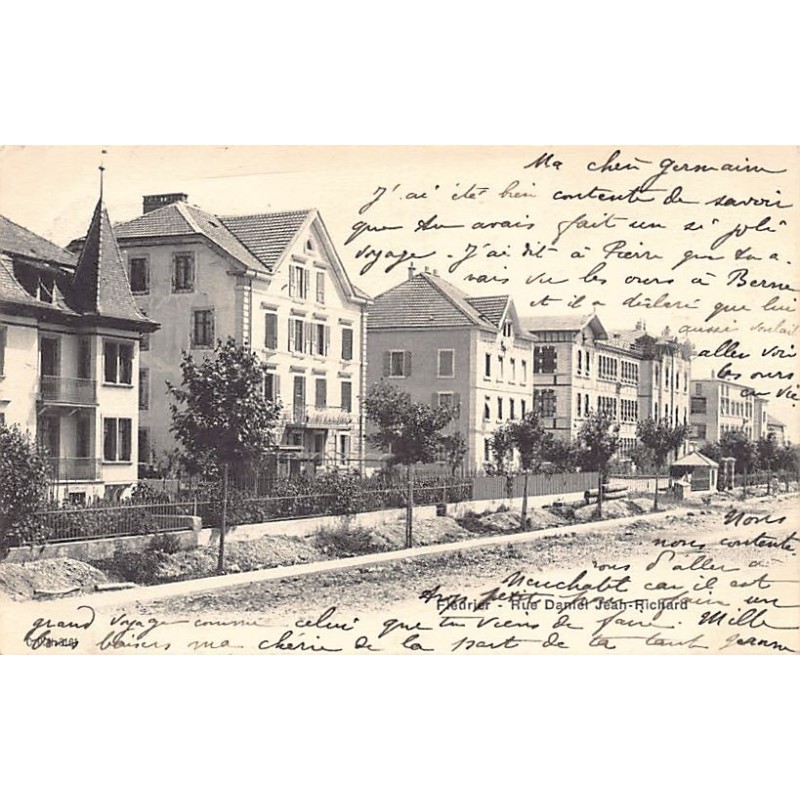 Ma chèr Germaine
J'ai été bien contente de savoir
que tu avais fait un si joli
voyage. J'ai dit à Pierre que tu a-
vais vu les ours à Berne
et il a déclaré que lui
aussi voulait
aller voir
les ours
au vie
Nous
nous contente
d'aller à
Neuchatel car il est
trop petit pour faire un
Fleurier - Rue Daniel Jean-Richard
grand voyage comme celui que tu viens de faire. Mille
bons baisers ma chérie de la part de ta tant Germm